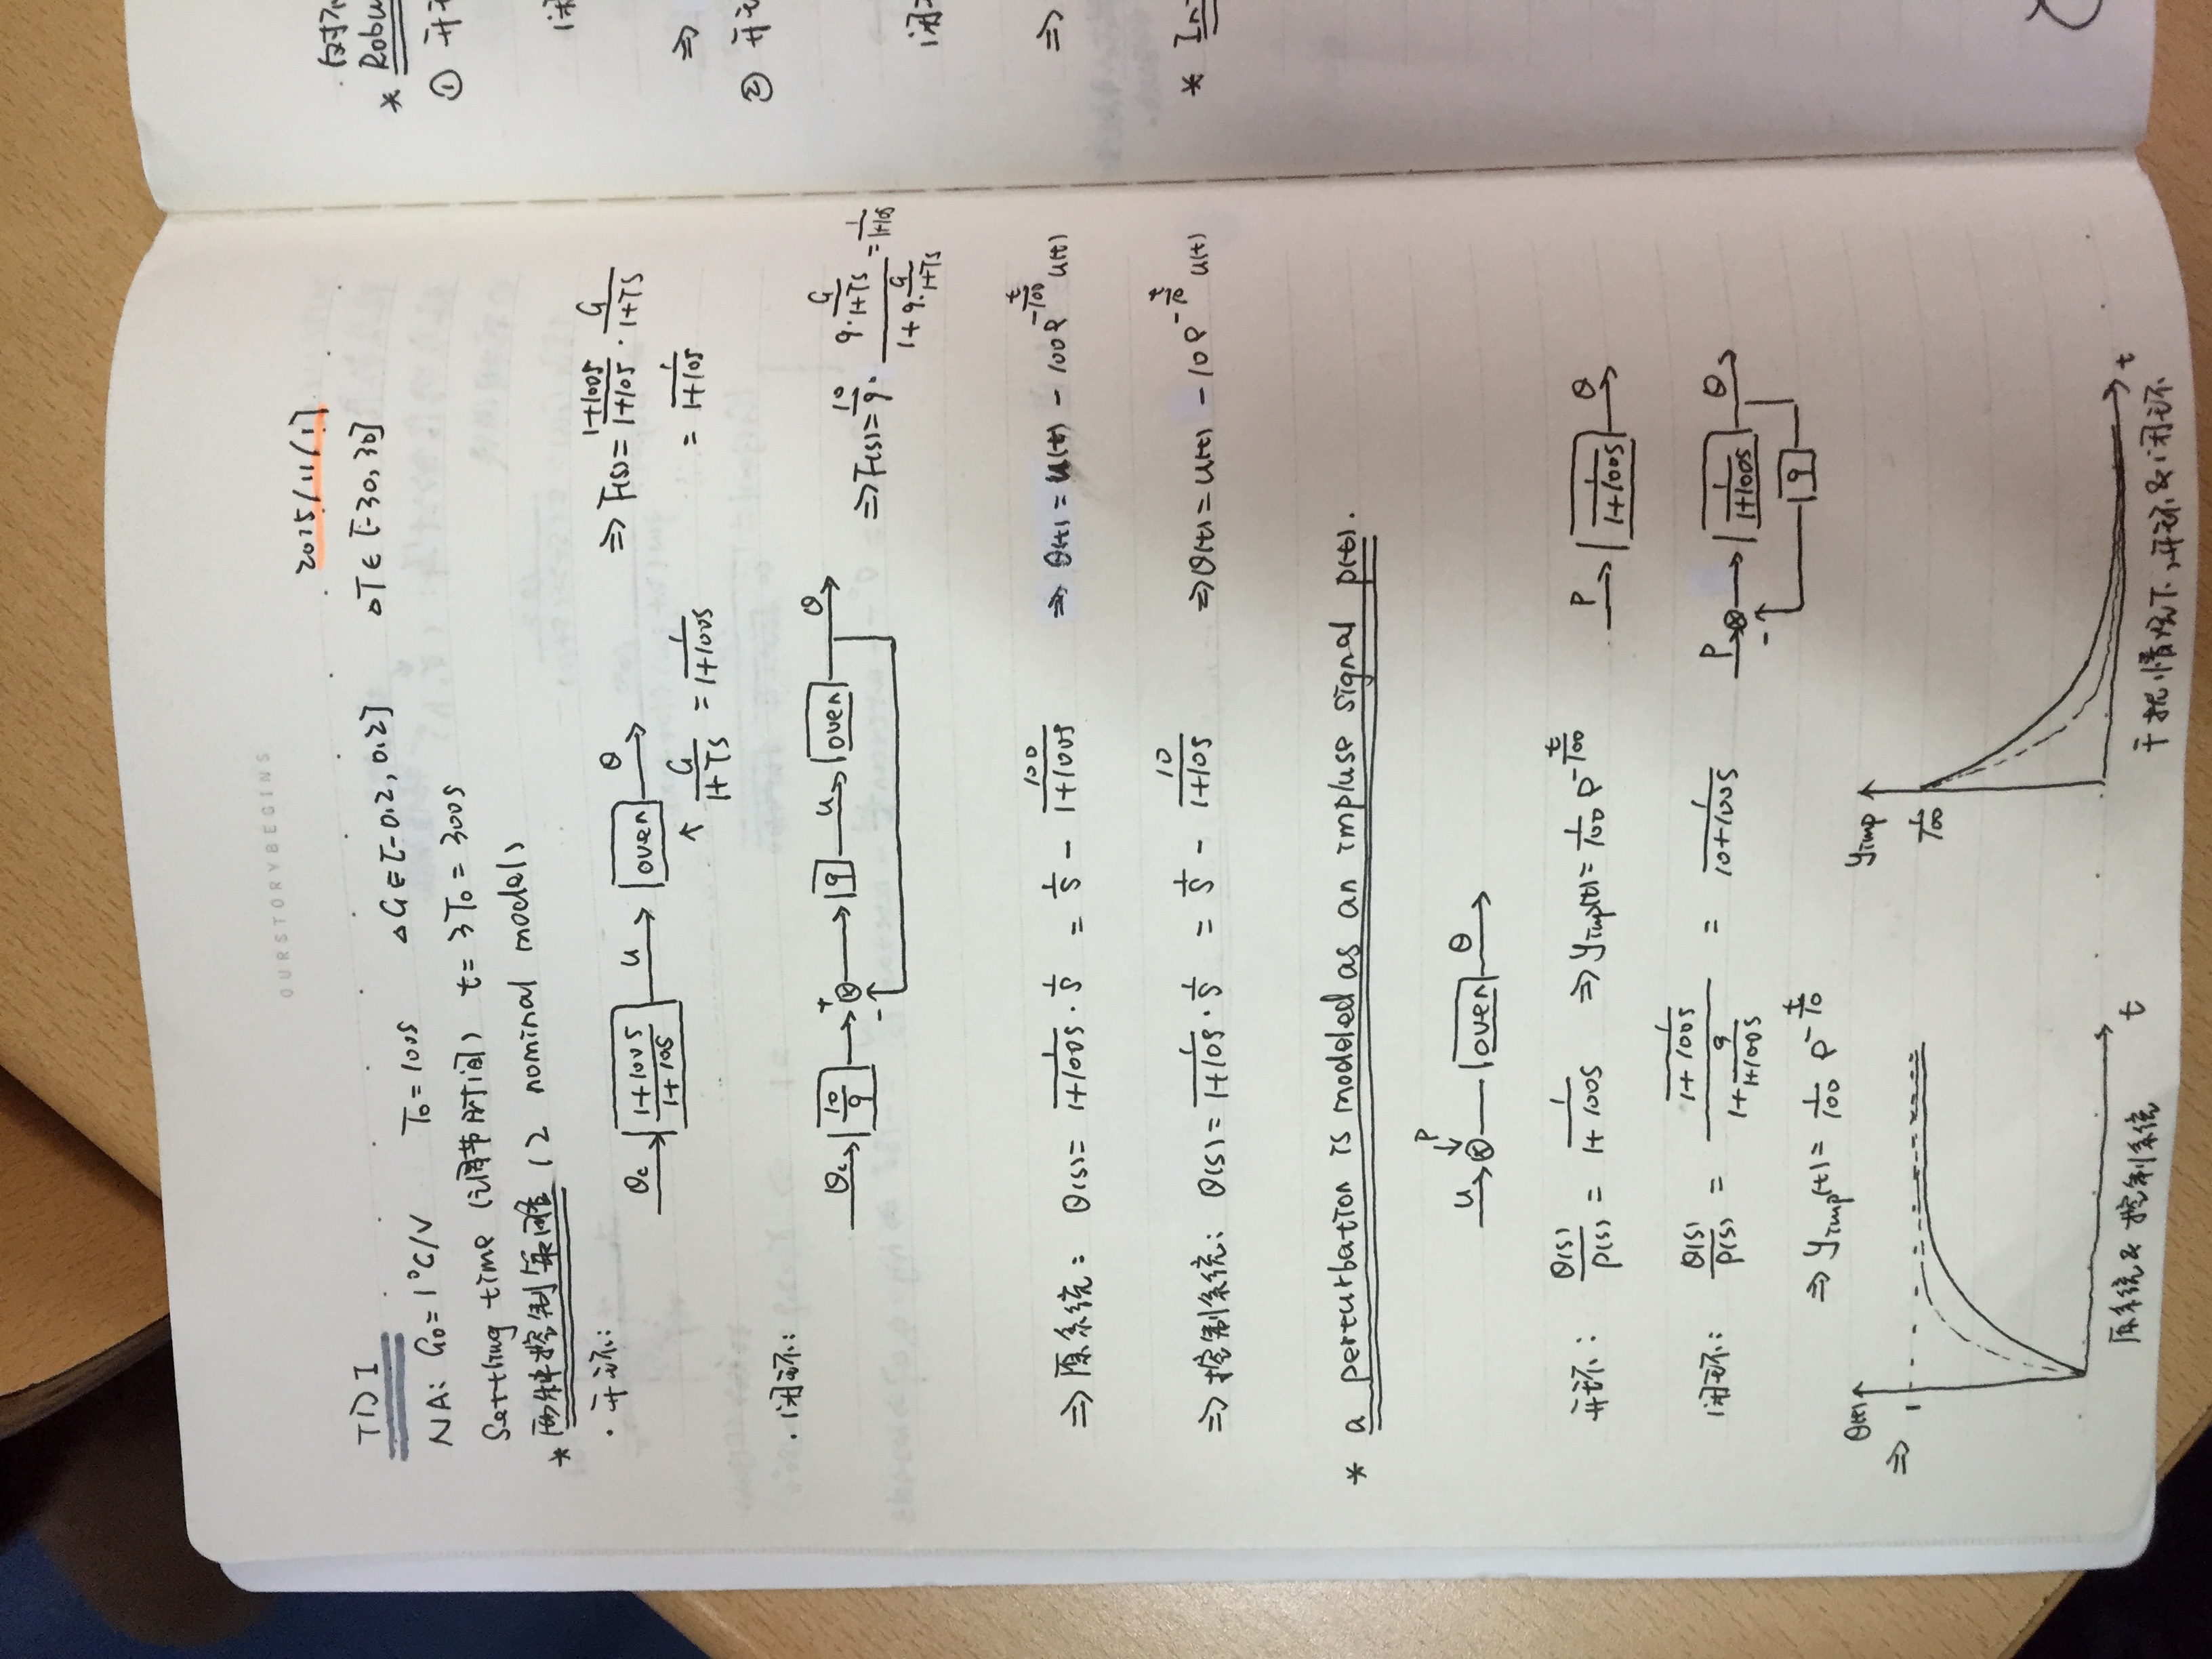 OURSTORYBEGINS
2015/11/17
TD1
NA: G₀ = 1°C/V T₀ = 100s ΔG ∈ [-0.2, 0.2] ΔT ∈ [-30, 30]
Settling time (调节时间) t = 3T₀ = 300s
* 两种控制策略 (2 nominal models)
· 开环:
θc → [(1+100s)/(1+10s)] → u → [oven] → θ ⇒ F(s) = (1+100s)/(1+10s) · G/(1+Ts)
↑ G/(1+Ts) = 1/(1+100s) = 1/(1+10s)
· 闭环:
θc → [10/9] → + ⊗ - → [9] → u → [oven] → θ ⇒ F(s) = 10/9 · (9·G/(1+Ts))/(1+9·G/(1+Ts)) = 1/(1+10s)
⇒ 原系统: θ(s) = 1/(1+100s) · 1/s = 1/s - 100/(1+100s) ⇒ θ(t) = u(t) - 100e^(-t/100) u(t)
⇒ 控制系统: θ(s) = 1/(1+10s) · 1/s = 1/s - 10/(1+10s) ⇒ θ(t) = u(t) - 10e^(-t/10) u(t)
* a perturbation is modeled as an impluse signal p(t).
P
u → ⊗ — [oven] → θ
开环: θ(s)/P(s) = 1/(1+100s) ⇒ yimp(t) = 1/100 e^(-t/100) P → [1/(1+100s)] → θ
闭环: θ(s)/P(s) = (1/(1+100s))/(1+9/(1+100s)) = 1/(10+100s) P → ⊗ - → [1/(1+100s)] → θ
[9]
⇒ yimp(t) = 1/100 e^(-t/10)
⇒ θ(t) 1 t
yimp 1/100 t
原系统 & 控制系统
干扰情况下,开环 & 闭环
* Robu
①
②
⇒
⇒
* In